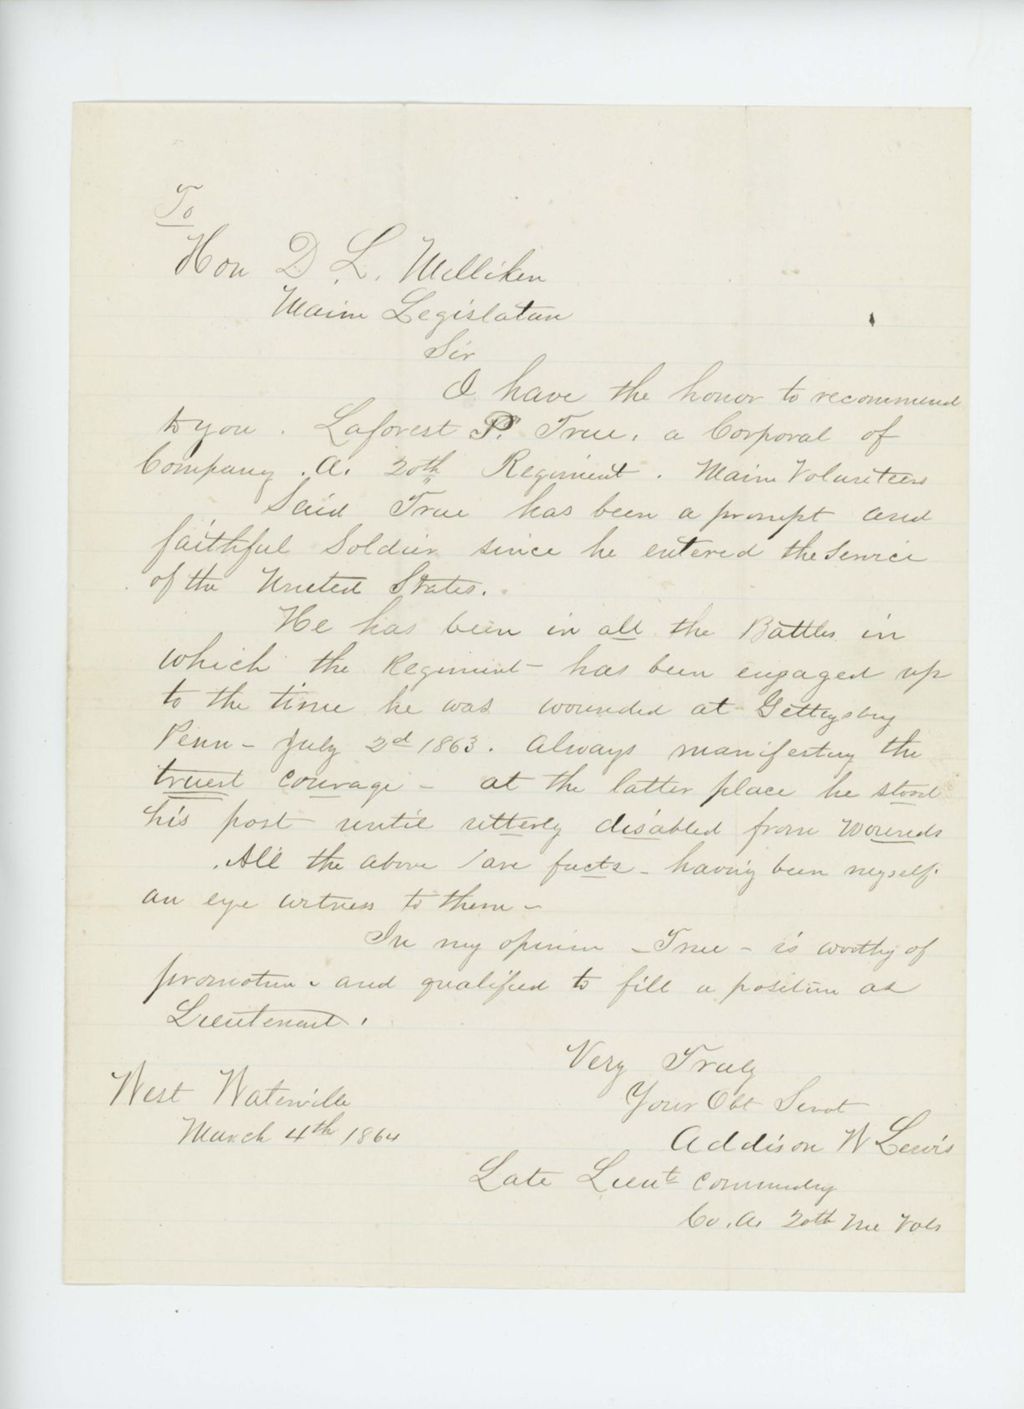 To
Hon D. L. Milliken
Maine Legislature
Sir
I have the honor to recommend
to you . Laforest P. True, a Corporal of
Company . A. 20th Regiment . Maine Volunteers
Said True has been a prompt and
faithful Soldier since he entered the Service
of the United States.
He has been in all the Battles in
which the Regiment - has been engaged up
to the time he was wounded at Gettysburg
Penn - July 2d 1863. Always manifesting the
truest courage - at the latter place he stood
his post until utterly disabled from wounds
. All the above / are facts - having been myself
an eye witness to them -
In my opinion - True - is worthy of
promotion - and qualified to fill a position as
Lieutenant .
Very Truly
Your Obt Servt
Addison W Lewis
Late Lieut Commndg
Co. A. 20th Me Vols
West Waterville
March 4th 1864